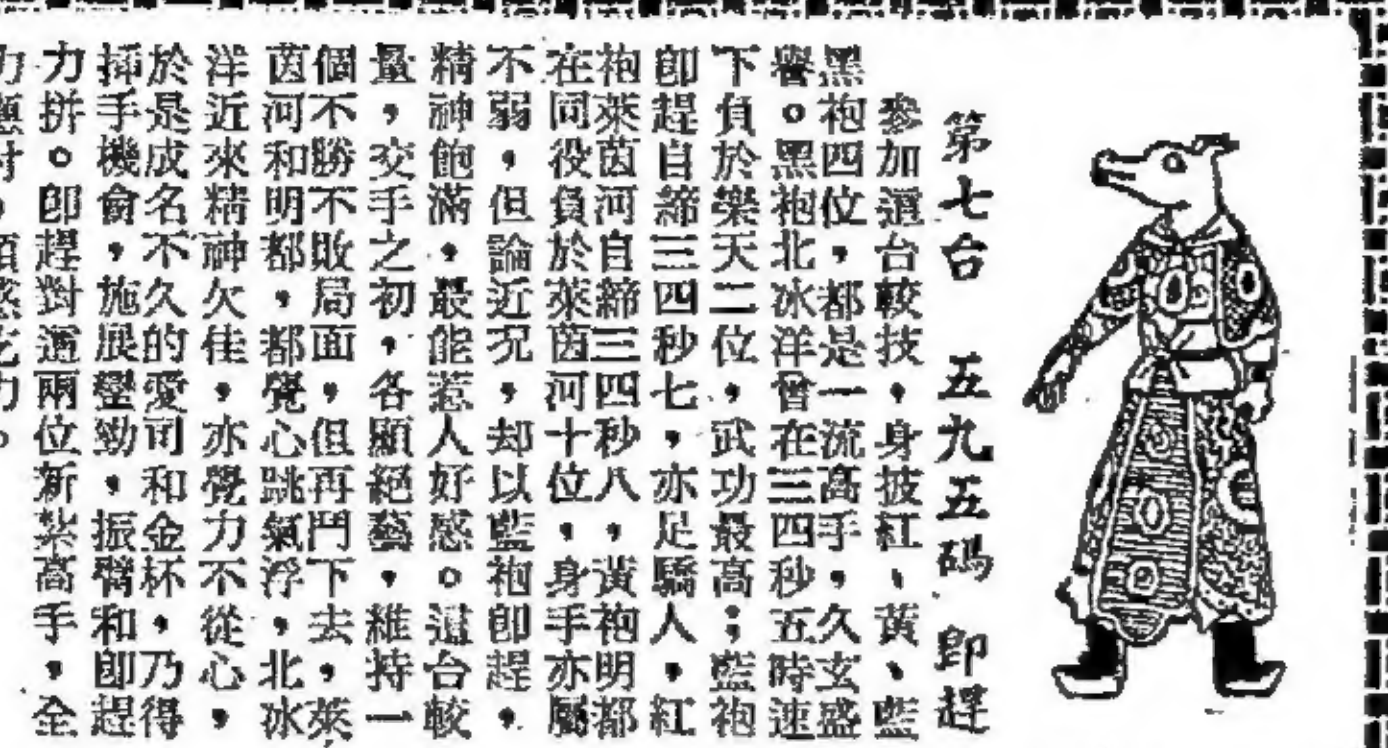 第七台　五九五碼　即趕
參加這台較技，身披紅、黃、藍
黑袍四位，都是一流高手，久玄盛
譽。黑袍北冰洋曾在三四秒五時速
下負於樂天二位，武功最高；藍袍
即趕自締三四秒七，亦足驕人，紅
袍萊茵河自締三四秒八，黃袍明都
在同役負於萊茵河十位，身手亦屬
不弱，但論近況，却以藍袍即趕，
精神飽滿，最能惹人好感。這台較
量，交手之初，各顯絕藝，維持一
個不勝不敗局面，但再鬥下去，萊
茵河和明都，都覺心跳氣浮，北冰
洋近來精神欠佳，亦覺力不從心，
於是成名不久的愛司和金杯，乃得
揷手機會，施展蠻勁，振臂和即趕
力拼。即趕對這兩位新紮高手，全
力應付，頗感吃力。